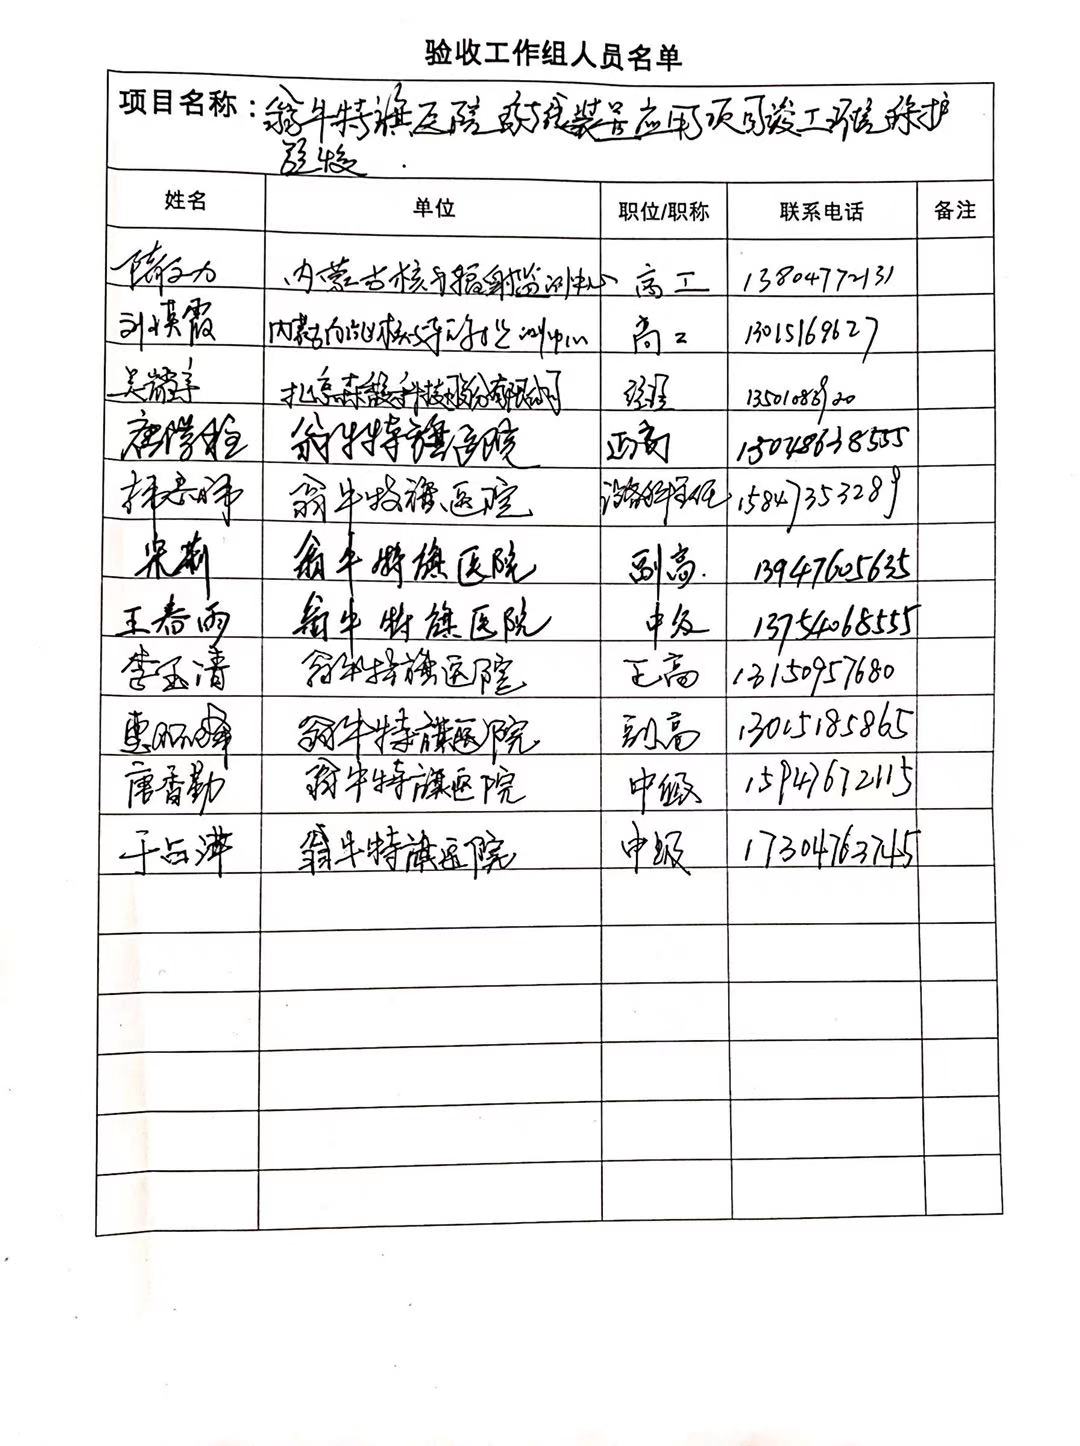 验收工作组人员名单
项目名称：翁牛特旗医院射线装置应用项目竣工环境保护
验收.
姓名 单位 职位/职称 联系电话 备注
内蒙古核与辐射监测中心 高工 13804772131
刘慎霞 高工 13015169627
吴 北京森馥科技股份有限公司 经理 13501083920
唐学栓 翁牛特旗医院 正高 15048638555
翁牛特旗医院 设备科主任 15847353289
宋莉 翁牛特旗医院 副高. 13947605635
王春雨 翁牛特旗医院 中级 13754068555
李玉清 翁牛特旗医院 正高 13150957680
翁牛特旗医院 副高 13015185865
唐香勤 翁牛特旗医院 中级 15947672115
于占洋 翁牛特旗医院 中级 17304763745